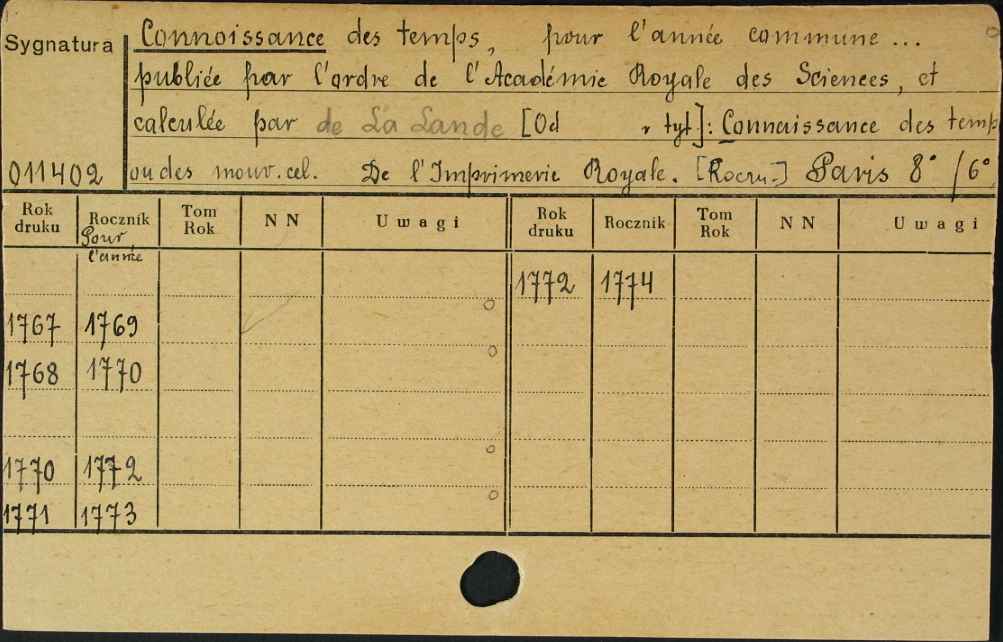 Sygnatura
Connoissance des temps, pour l'année commune ...
publiée par l'ordre de l'Académie Royale des Sciences, et
calculée par de La Lande [Od „ tyt]: Connaissance des temp
011402 ou des mouv. cel. De l'Imprimerie Royale. [Roczn.-] Paris 8° /6°
Rok druku Rocznik Tom Rok NN Uwagi Rok druku Rocznik Tom Rok NN Uwagi
Pour l'année
1772 1774
1767 1769
1768 1770
1770 1772
1771 1773